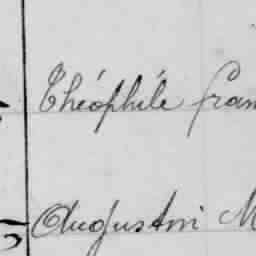 Théophile fran
Augustin M